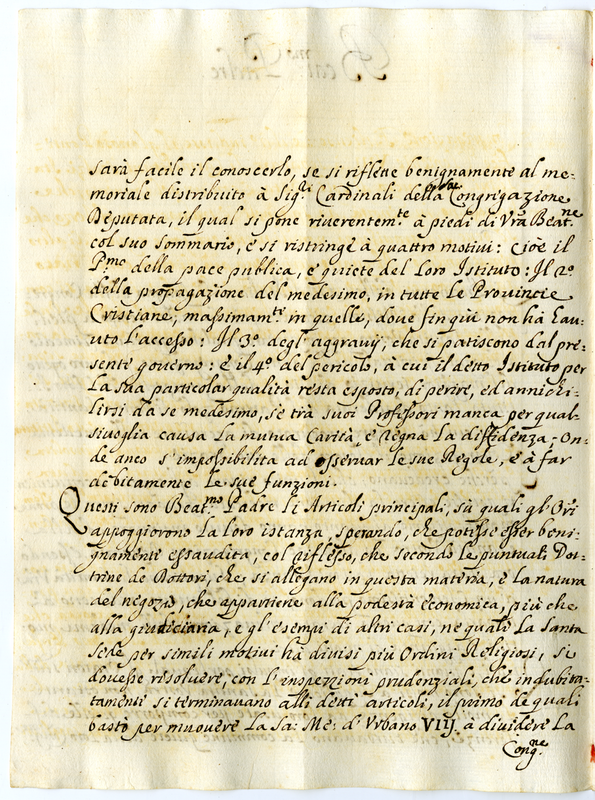 sarà facile il conoscerlo, se si riflette benignamente al me-
moriale distribuito à Sig.ri Cardinali della Congregazione
Deputata, il qual si pone riverentem.te à piedi di Vra Beat.ne
col suo sommario, e si ristringe à quattro motivi: cioè il
P.mo della pace publica, e quiete del Loro Istituto: Il 2.o
della propagazione del medesimo, in tutte Le Provincie
Cristiane, massimam.te in quelle, dove fin quì non hà Lau-
uto L'accesso: Il 3.o degl'aggravij, che si patiscono dal pre-
sente governo: e il 4.o del pericolo, à cui il detto Istituto per
La sua particolar qualità resta esposto, di perire, ed annichi-
lirsi da se medesimo, se trà suoi Professori manca per qual-
sivoglia causa La mutua Carità, e regna La diffidenza, On-
de anco s'impossibilita ad osservar le sue Regole, e à far
debitamente le sue funzioni.
Questi sono Beat.mo Padre li Articoli principali, sù quali gl'Ori
appoggiorono La loro istanza, sperando, che potesse esser beni-
gnamente essaudita, col riflesso, che secondo le puntuali Dot-
trine de Dottori, che si allegano in questa materia, e la natura
del negozio, che appartiene alla podestà economica, più che
alla giudiciaria, e gl'esempi di altri casi, ne quali La Santa
sede per simili motivi hà divisi più Ordini Religiosi, si
dovesse risolvere, con l'inspezzioni prudenziali, che indubita-
tamente si terminavano alli detti articoli, il primo de quali
bastò per muovere La Sa: Me: d'Urbano VIIJ. à dividere La
Cong.ne